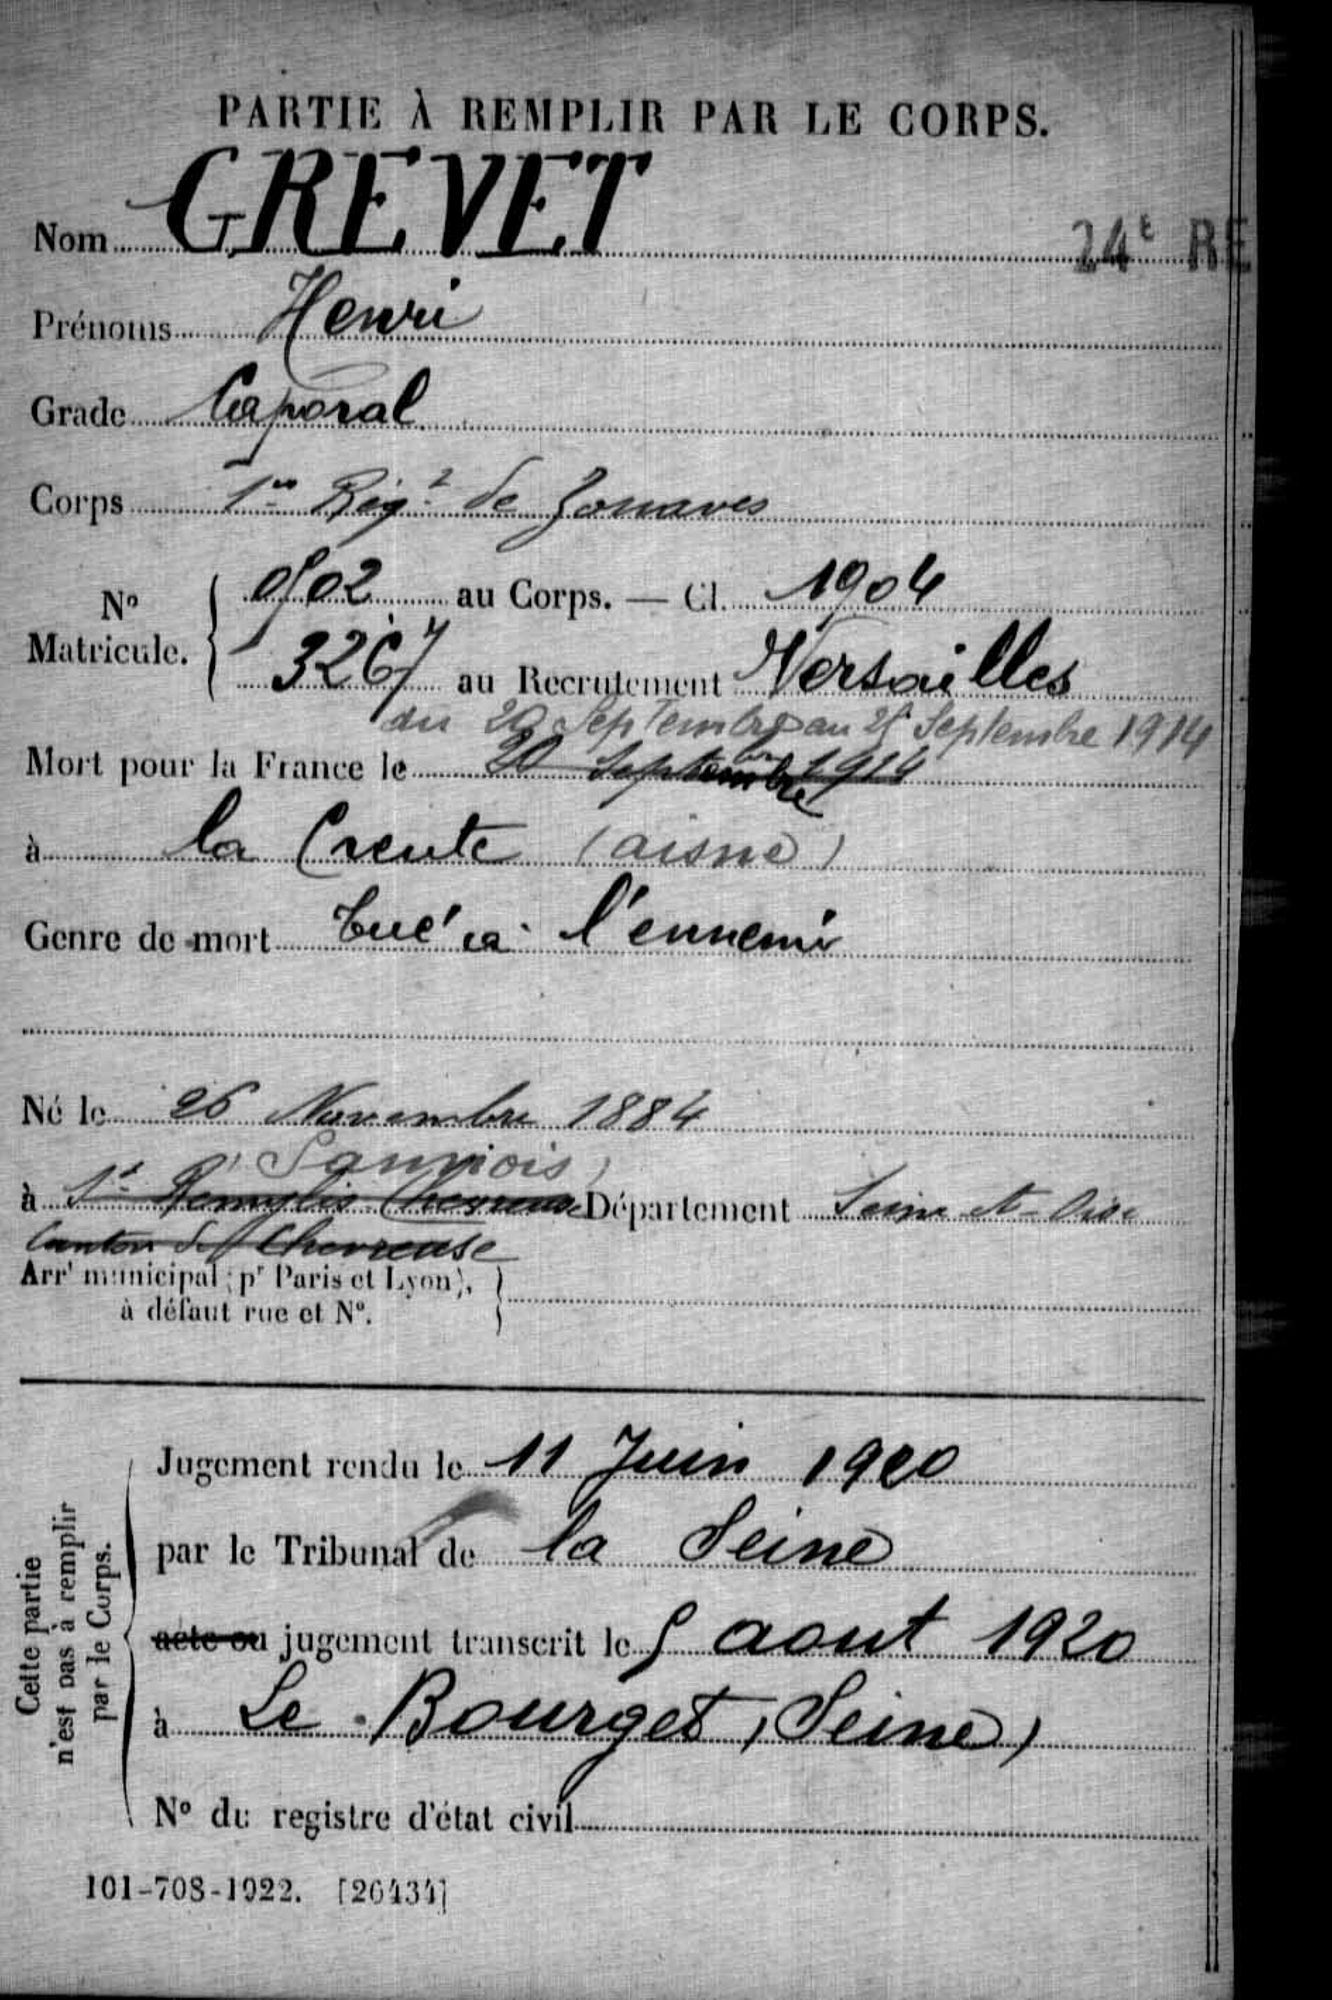 PARTIE À REMPLIR PAR LE CORPS.
Nom GREVET
24E RE
Prénoms Henri
Grade Caporal
Corps 1er Régt de Zouaves
No Matricule. 0502 au Corps. — Cl. 1904
3267 au Recrutement Versailles
du 20 Septembre au 25 Septembre 1914
Mort pour la France le 20 Septembre 1914
à la Creute (aisne)
Genre de mort Tué à l'ennemi
Né le 26 Novembre 1884
Sannois
à St Remy lès Chevreuse Département Seine et Oise
Canton de Chevreuse
Arrt municipal (pr Paris et Lyon),
à défaut rue et No.
Cette partie
n'est pas à remplir
par le Corps.
Jugement rendu le 11 Juin 1920
par le Tribunal de la Seine
acte ou jugement transcrit le 5 aout 1920
à Le Bourget (Seine)
No du registre d'état civil
101-708-1922. [26434]